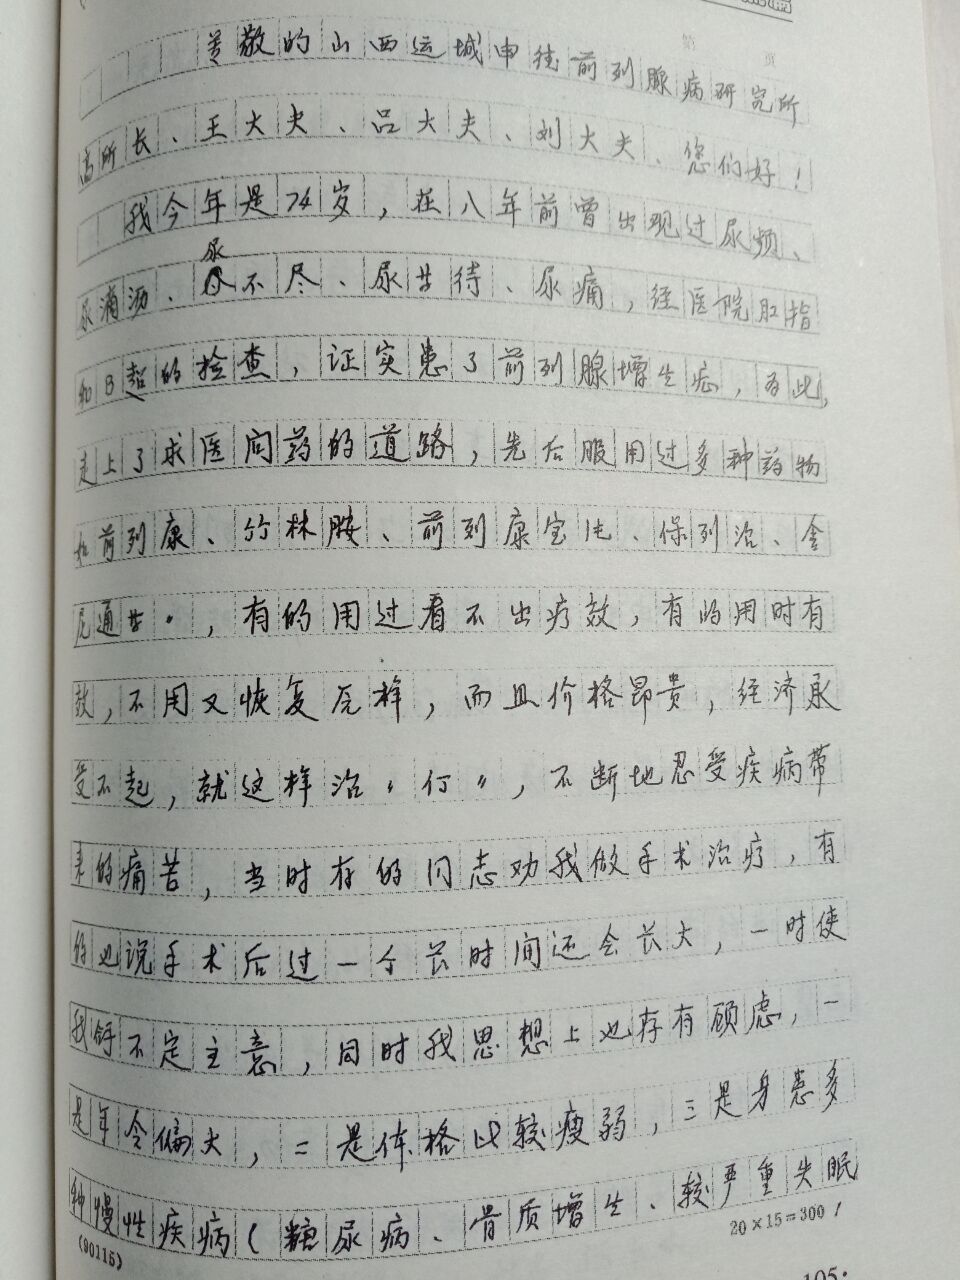 第 页
尊敬的山西运城中徍前列腺病研究所
高所长、王大夫、吕大夫、刘大夫、您们好！
我今年是74岁，在八年前曾出现过尿频、
尿滴沥、尿不尽、尿等待、尿痛，经医院肛指
和B超的检查，证实患了前列腺增生症，为此，
走上了求医问药的道路，先后服用过多种药物
如前列康、竹林胺、前列康宝、保列治、舍
尼通等。，有的用过看不出疗效，有的用时有
效，不用又恢复原样，而且价格昂贵，经济承
受不起，就这样治〃行〃，不断地忍受疾病带
来的痛苦，当时有的同志劝我做手术治疗，有
的也说手术后过一个长时间还会长大，一时使
我拿不定主意，同时我思想上也存有顾虑，一
是年令偏大，二是体格比较瘦弱，三是身患多
种慢性疾病（糖尿病、骨质增生、较严重失眠
(90115)
20×15=300
105·